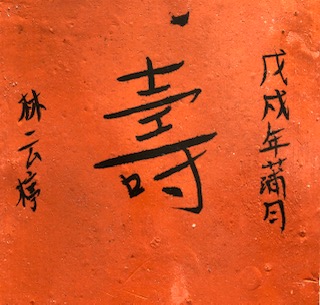 戊戌年蒲月
壽
林云婷